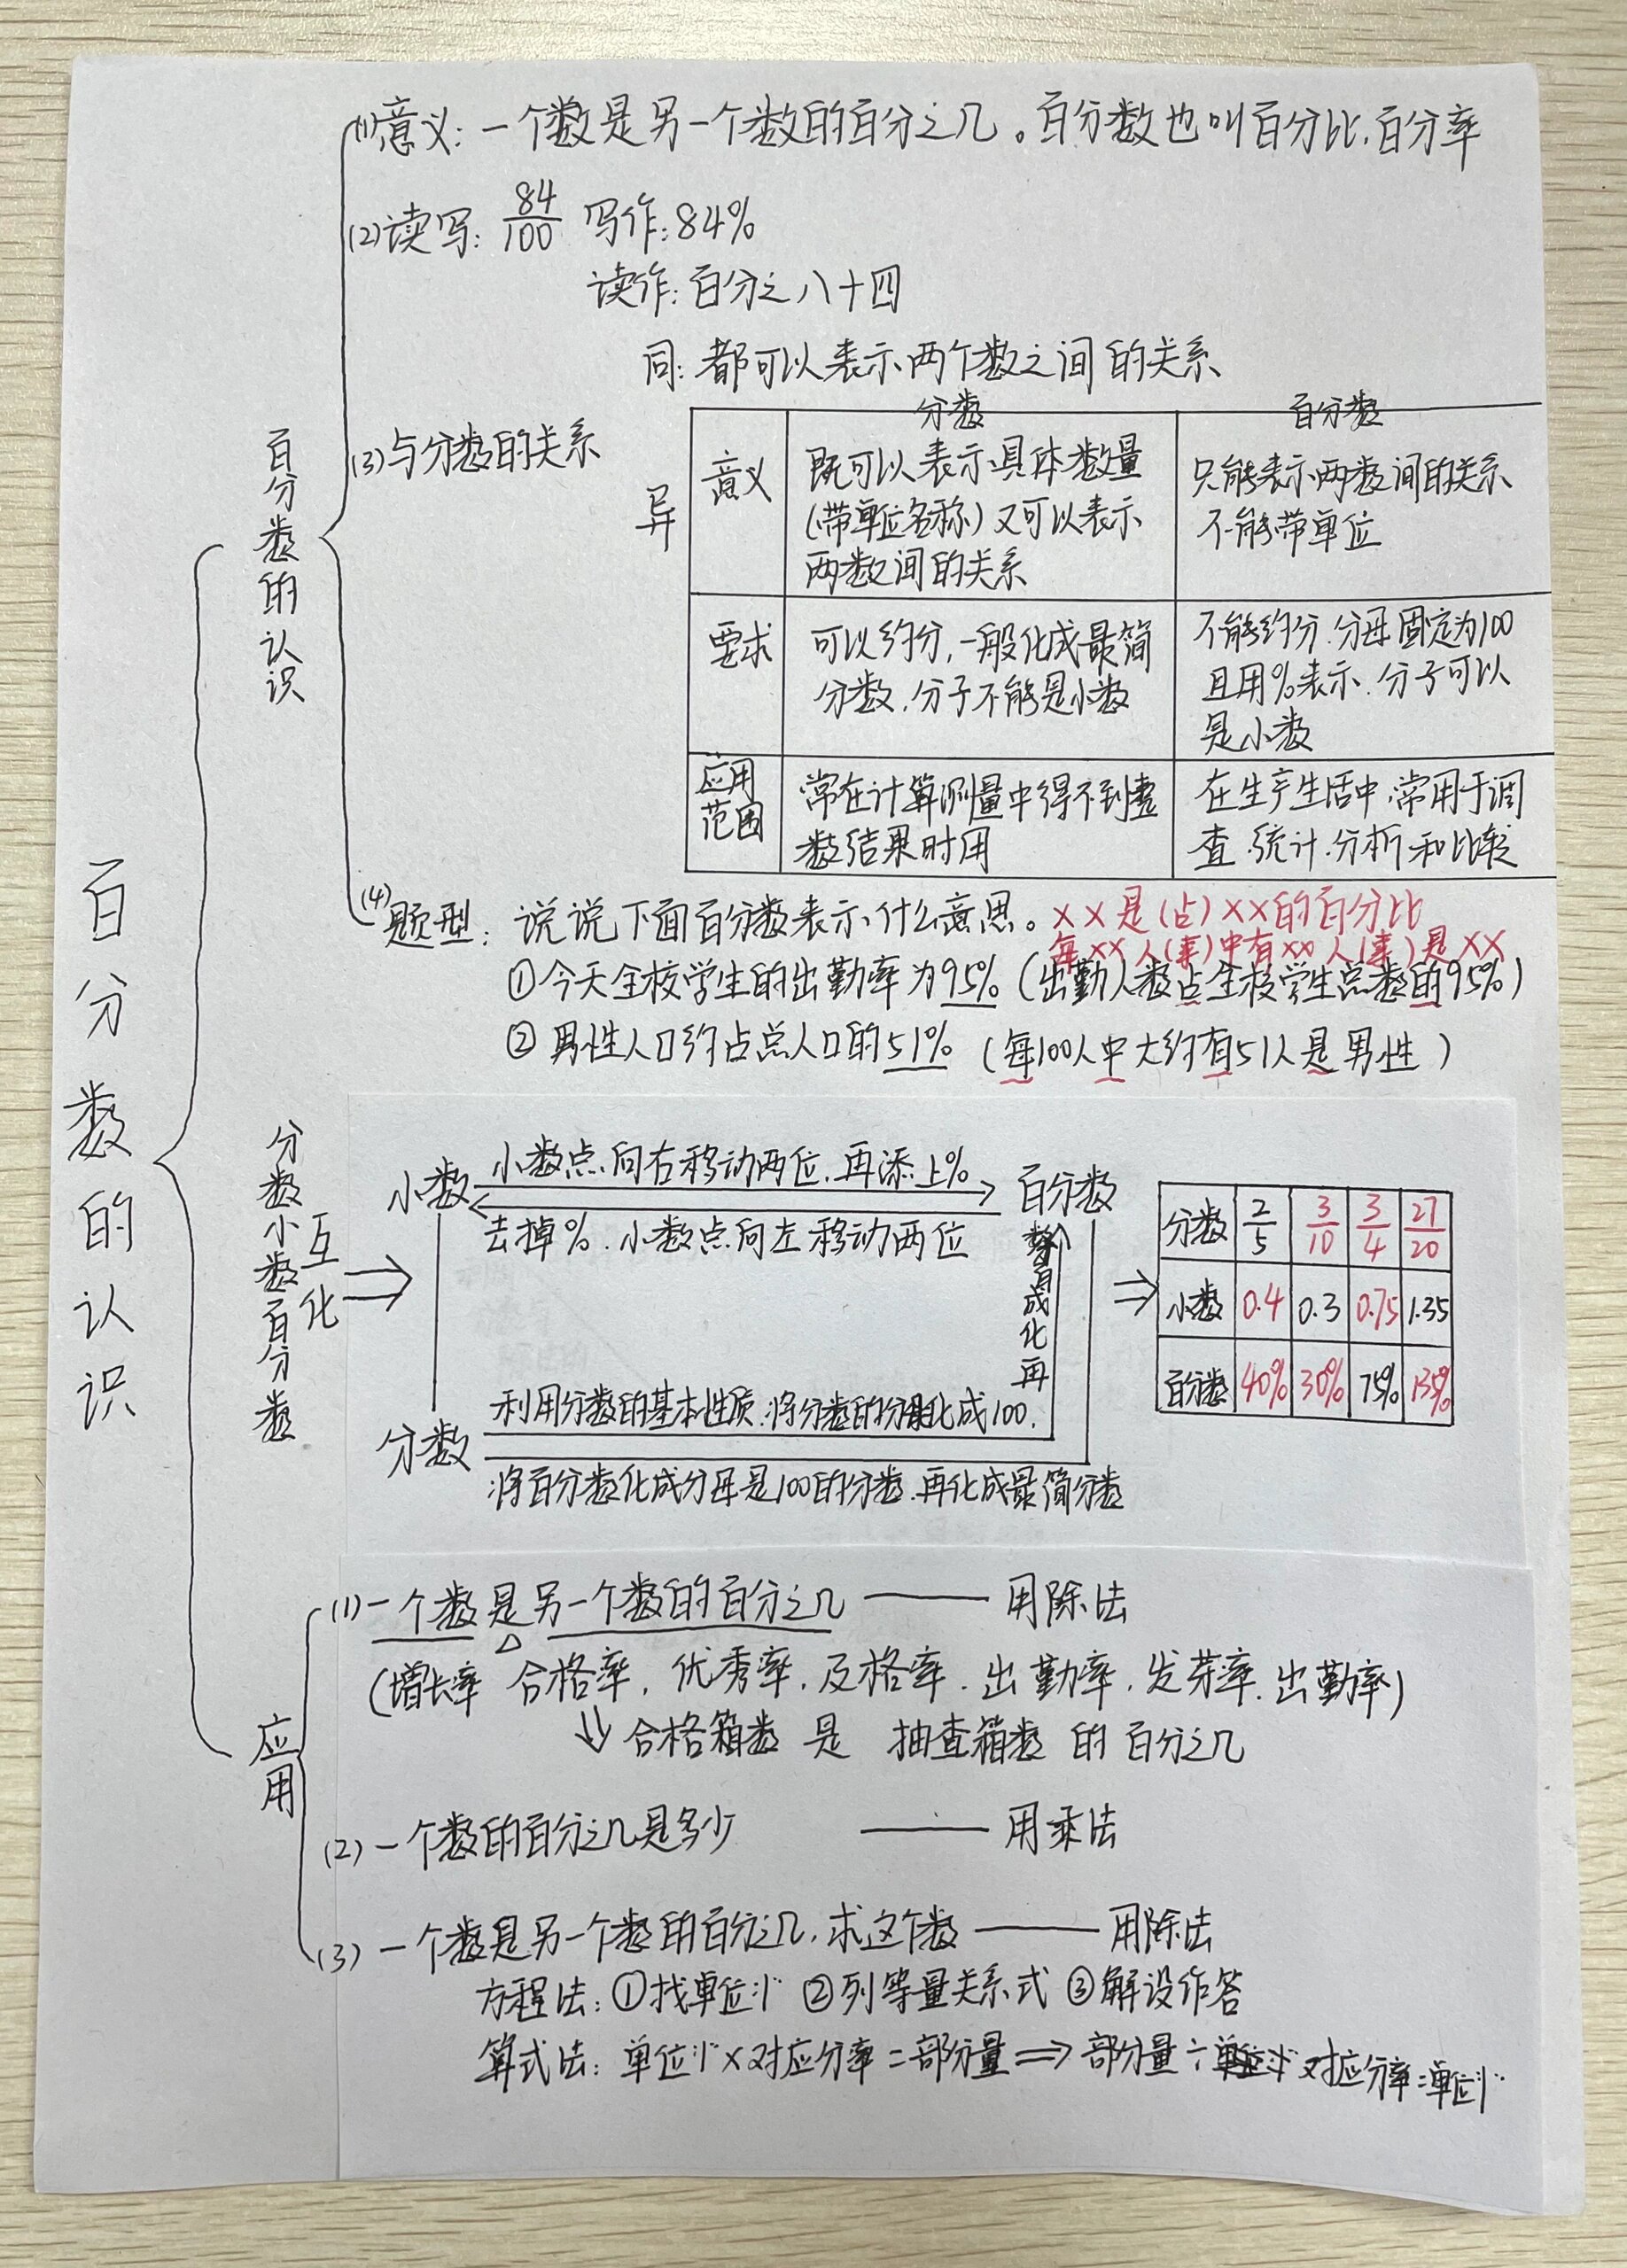 百分数的认识
百分数的认识
(1)意义:一个数是另一个数的百分之几。百分数也叫百分比.百分率
(2)读写: 84/100 写作:84%
读作:百分之八十四
(3)与分数的关系
同:都可以表示两个数之间的关系
异
分数 百分数
意义 既可以表示具体数量(带单位名称)又可以表示两数之间的关系 只能表示两数间的关系不能带单位
要求 可以约分,一般化成最简分数.分子不能是小数 不能约分.分母固定为100且用%表示.分子可以是小数
应用范围 常在计算测量中得不到整数结果时用 在生产生活中,常用于调查.统计.分析和比较
(4)题型:说说下面百分数表示什么意思。××是(占)××的百分比
每××人(率)中有××人(率)是××
①今天全校学生的出勤率为95%(出勤人数占全校学生总数的95%)
②男性人口约占总人口的51% (每100人中大约有51人是男性)
分数小数百分数
互化
小数 小数点向右移动两位.再添上% 百分数
去掉%.小数点向左移动两位
分数 利用分数的基本性质.将分数的分母化成100.
再化成百
将百分数化成分母是100的分数.再化成最简分数
分数 2/5 3/10 3/4 27/20
小数 0.4 0.3 0.75 1.35
百分数 40% 30% 75% 135%
应用
(1)一个数是另一个数的百分之几 —— 用除法
(增长率 合格率,优秀率,及格率.出勤率,发芽率.出勤率)
⇓合格箱数 是 抽查箱数 的 百分之几
(2)一个数的百分之几是多少 —— 用乘法
(3)一个数是另一个数的百分之几,求这个数 —— 用除法
方程法:①找单位"1" ②列等量关系式 ③解设作答
算式法:单位"1"×对应分率=部分量⇒部分量÷对应分率=单位"1"